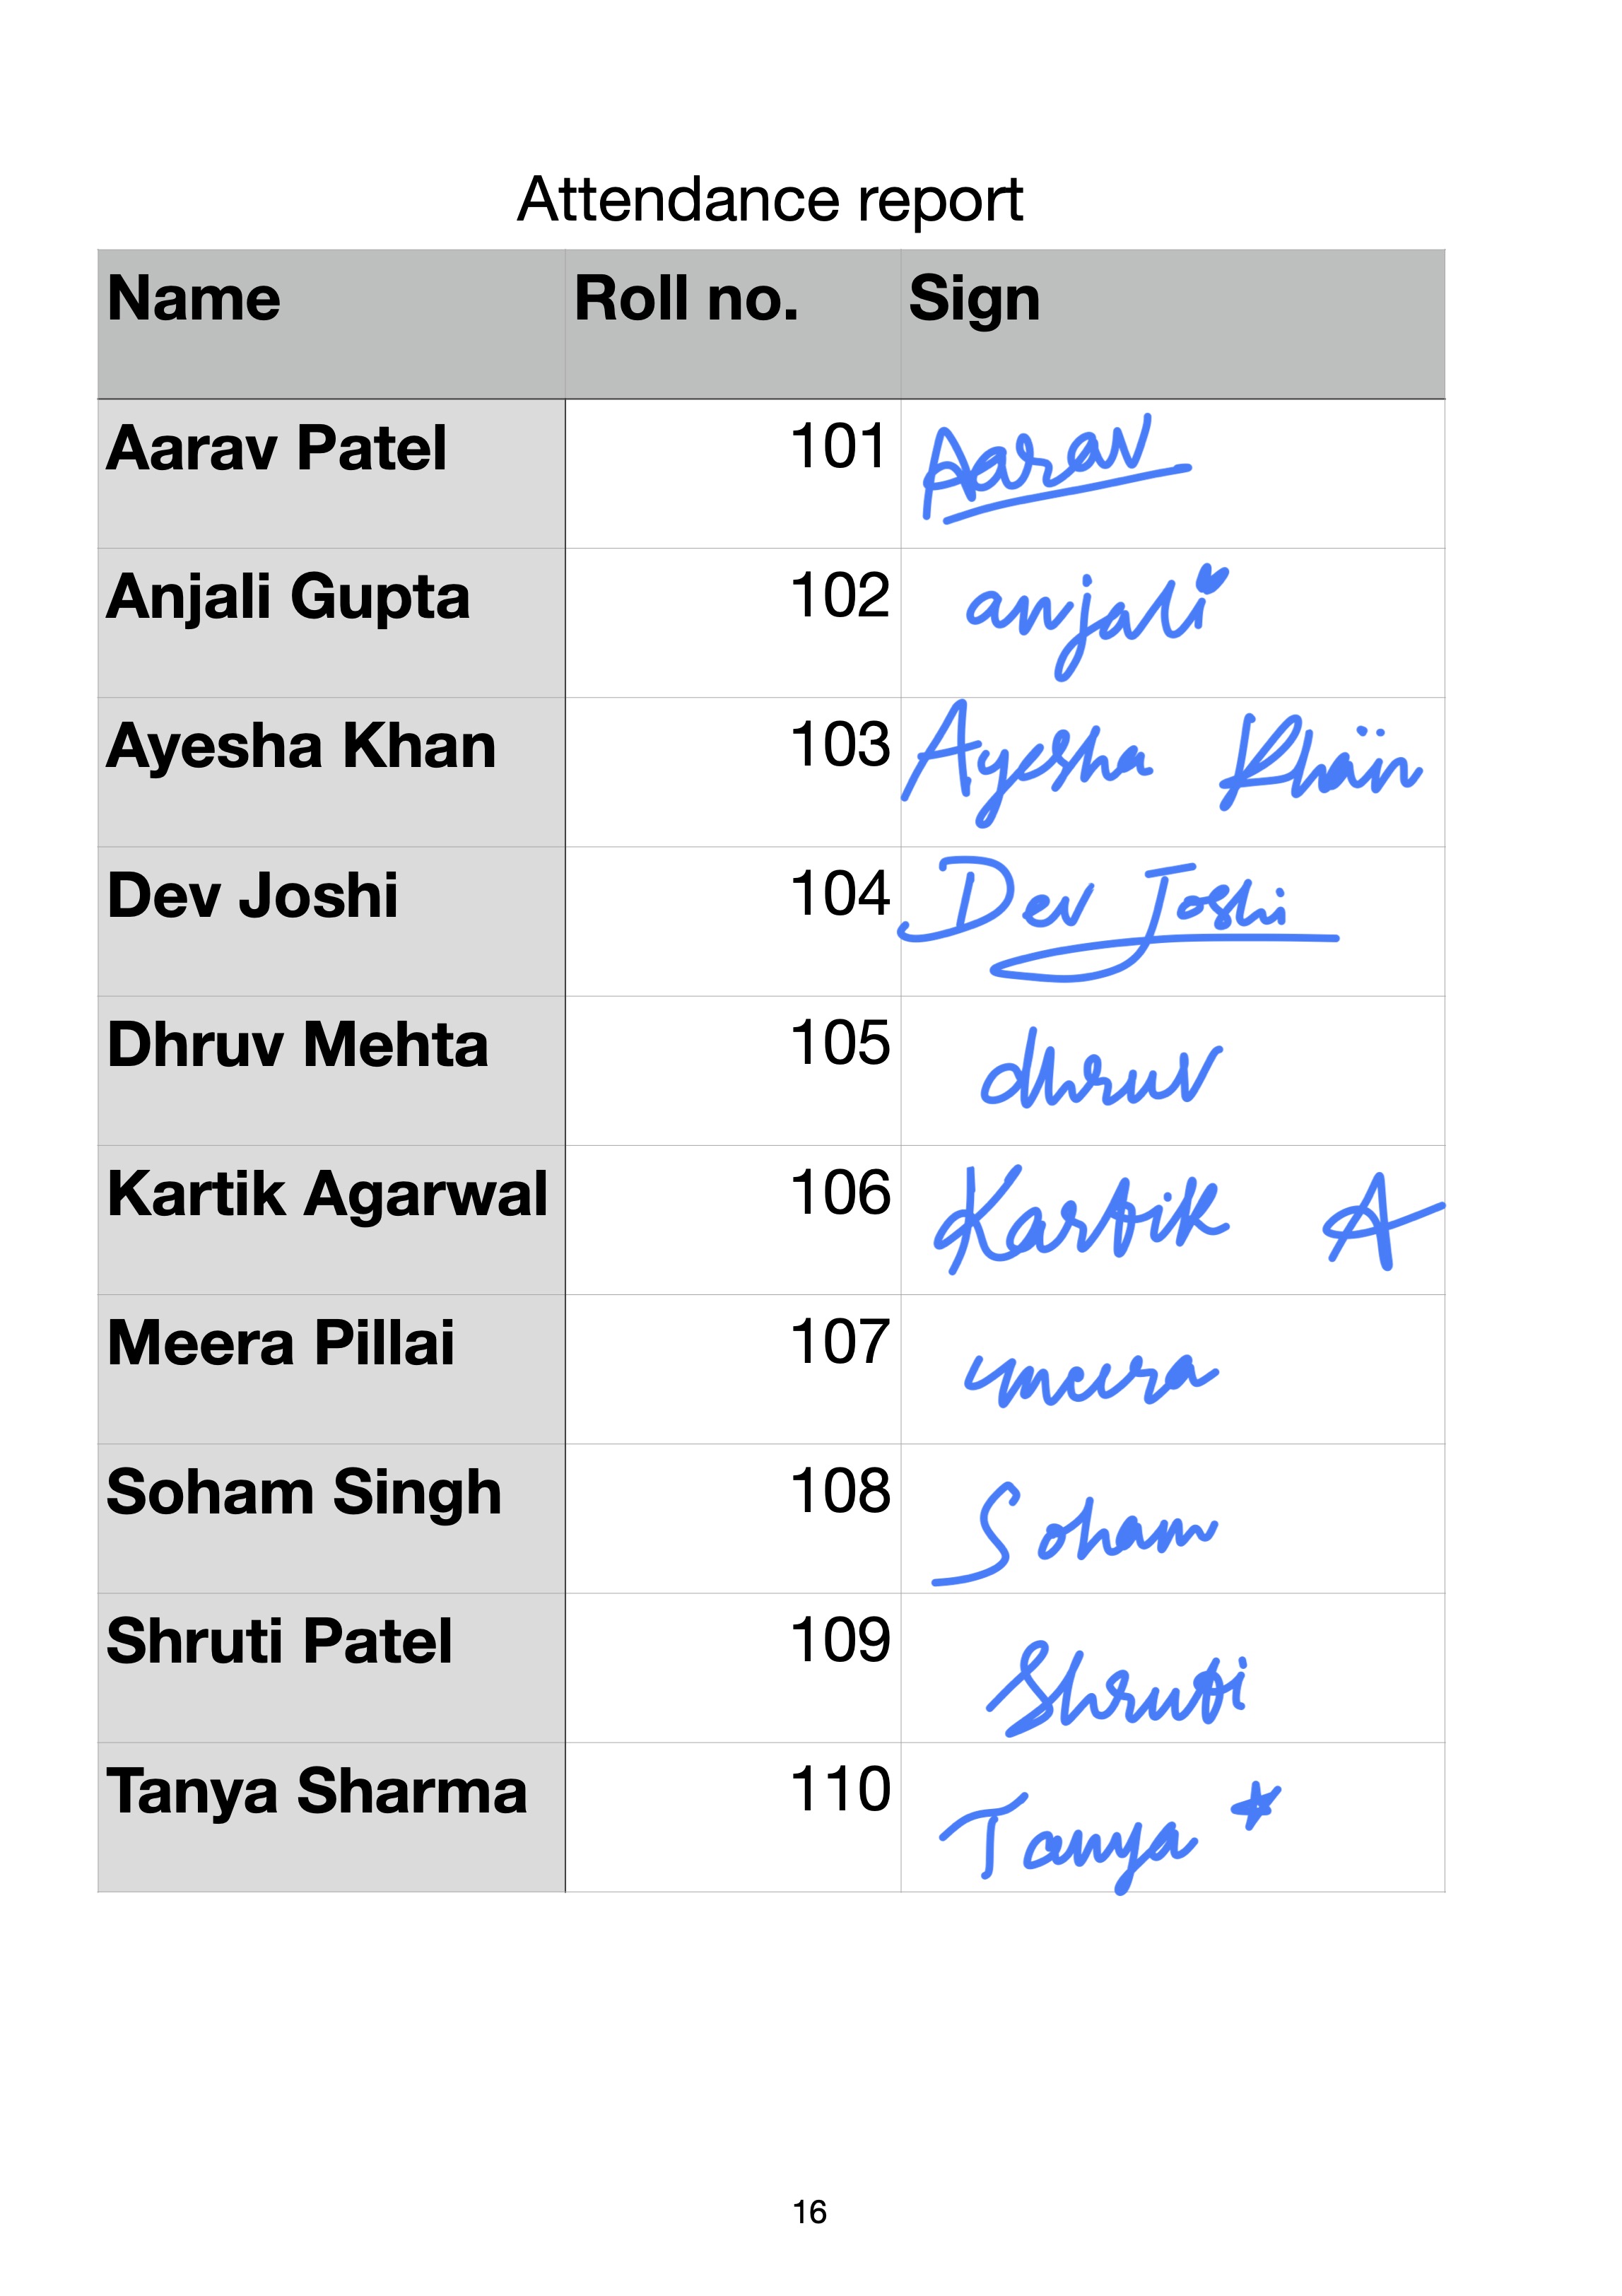 Attendance report
Name Roll no. Sign
Aarav Patel 101 Aarav
Anjali Gupta 102 anjali
Ayesha Khan 103 Ayesha Khan
Dev Joshi 104 Dev Joshi
Dhruv Mehta 105 dhruv
Kartik Agarwal 106 Kartik A
Meera Pillai 107 meera
Soham Singh 108 Soham
Shruti Patel 109 Shruti
Tanya Sharma 110 Tanya *
16